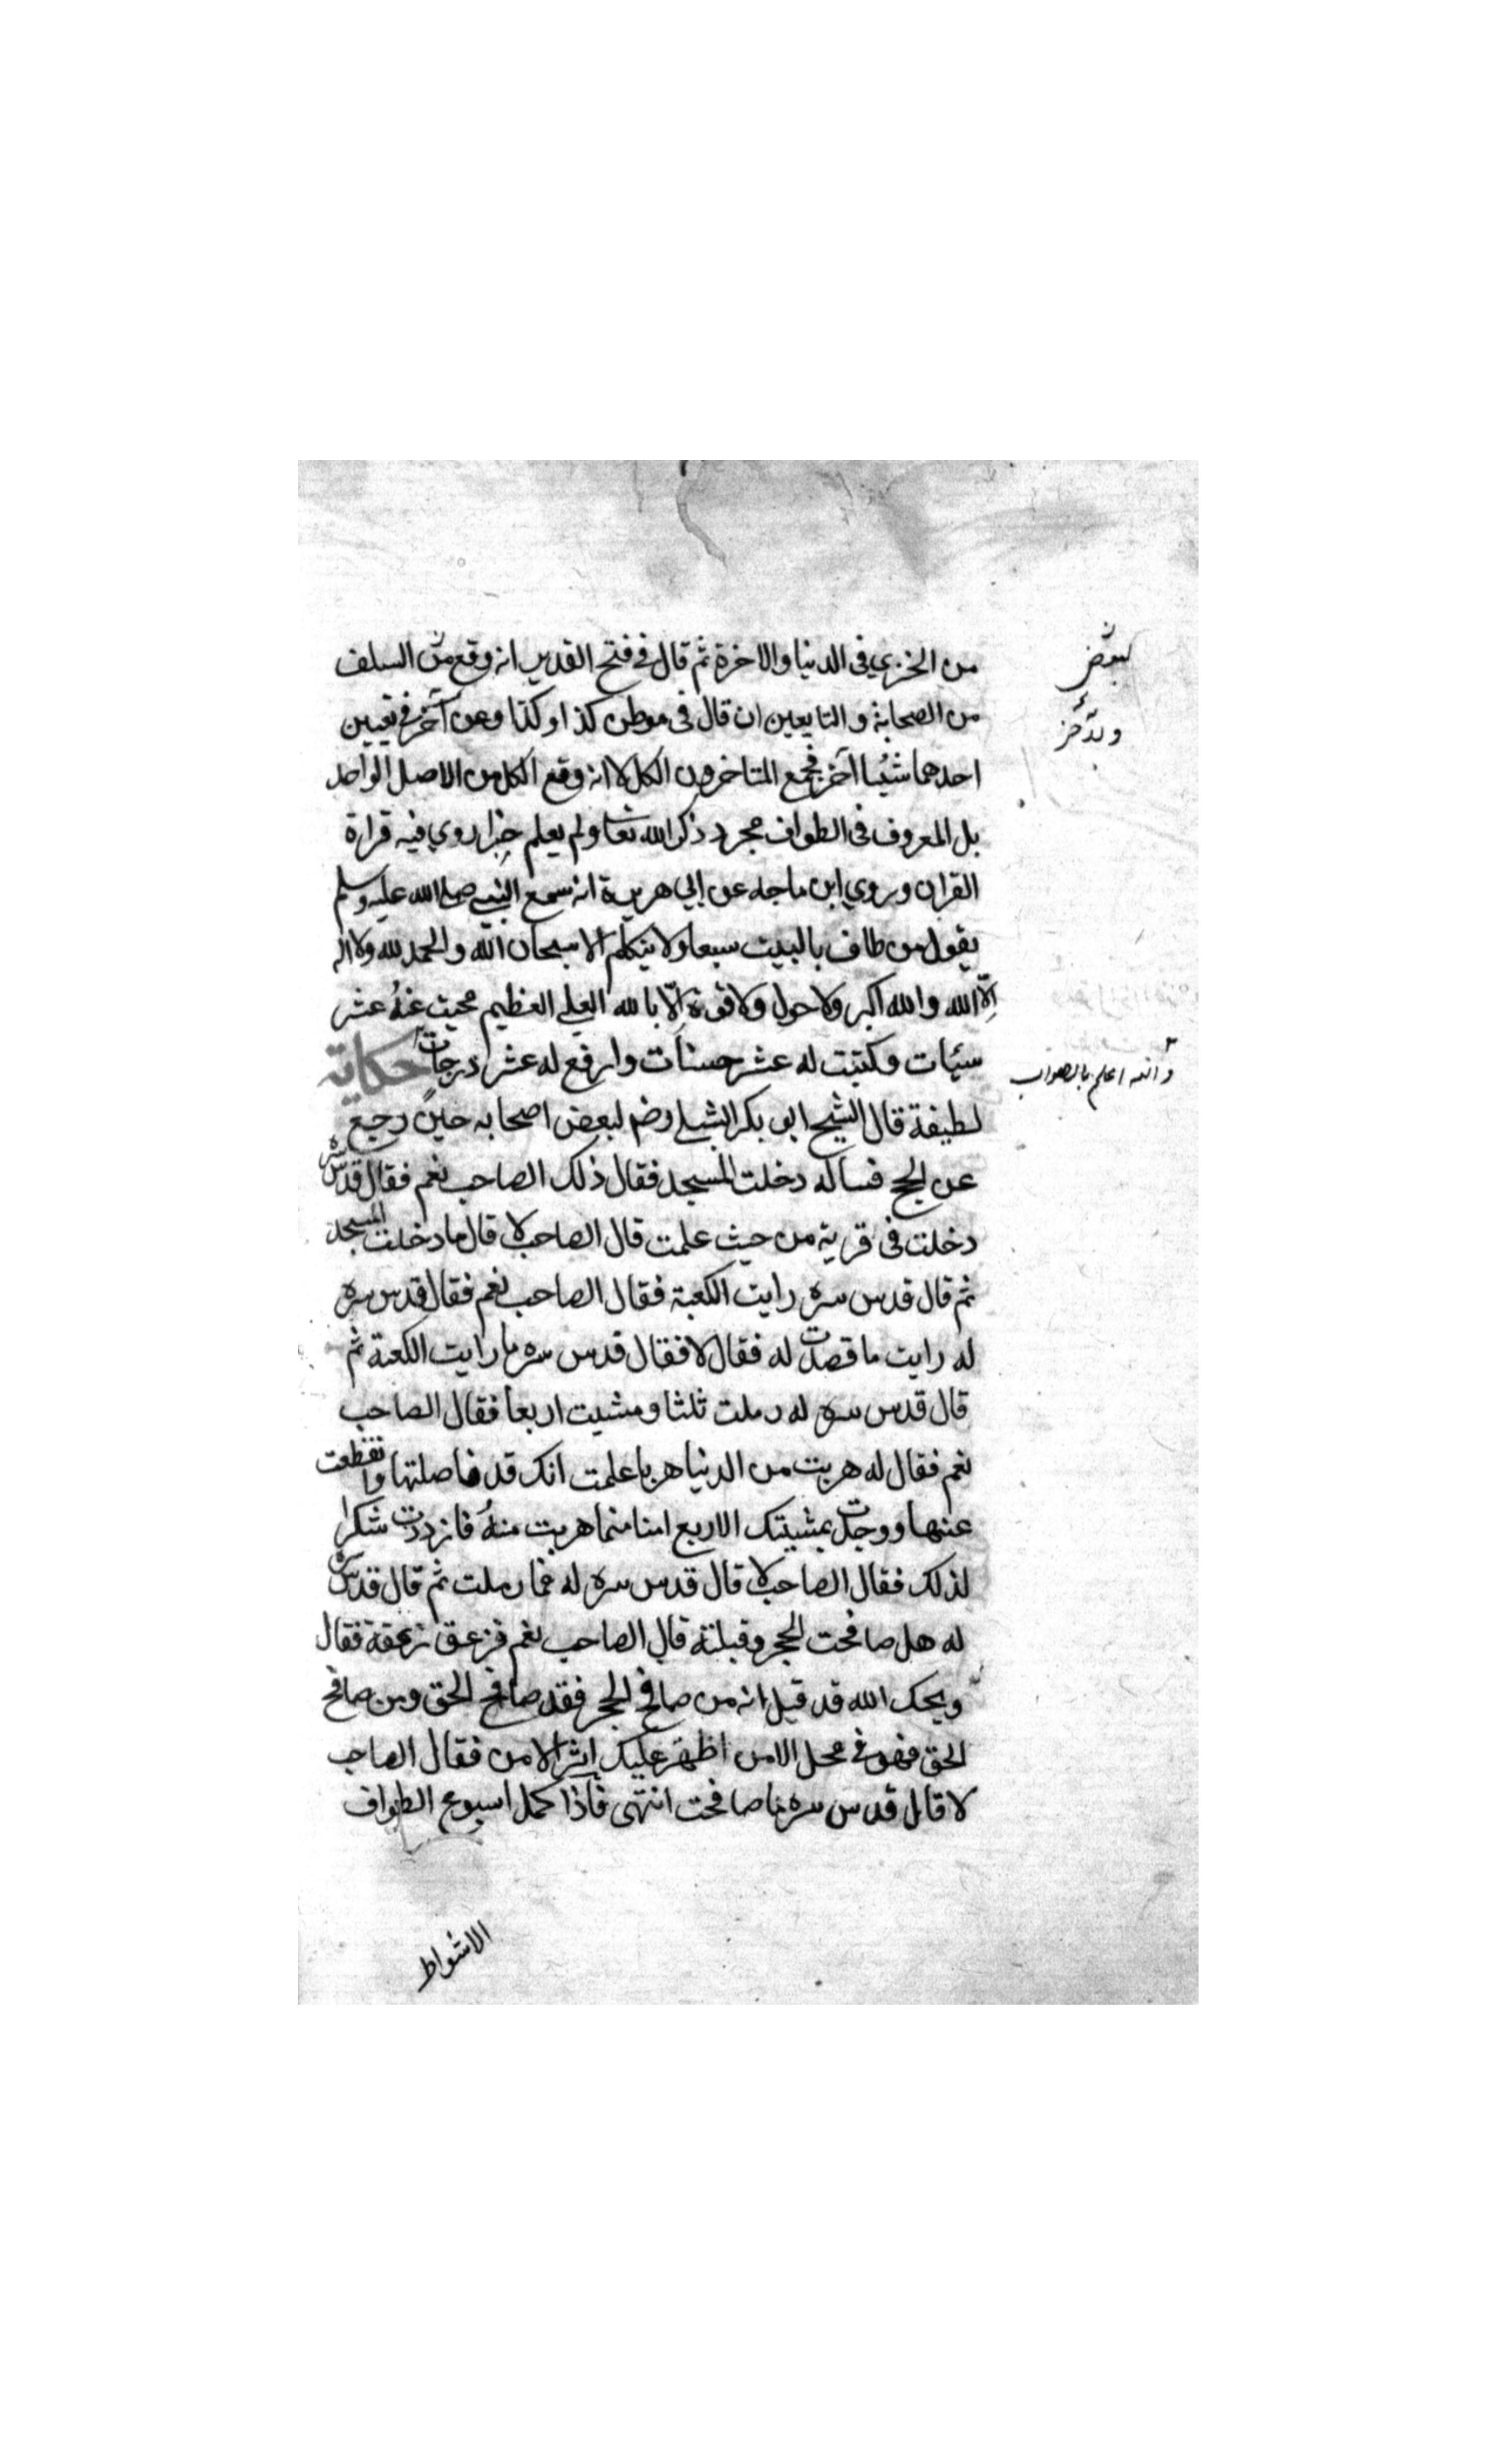 من الخزي في الدنيا والاخرة ثم قال في فتح القدير انه وقع من السلف
لبعض
من الصحابة والتابعين ان قال في موطن كذا وكذا وعن آخر في تعيين
احدهما شيئا آخر فجمع المتاخرون الكل لا انه وقع الكل من الاصل الواحد
بل المعروف في الطواف مجرد ذكر الله تعا ولم يعلم خبرا روي فيه قراة
القران وروي ابن ماجه عن ابي هريرة انه سمع النبي صلى الله عليه وسلم
يقول من طاف بالبيت سبعا ولا يتكلم الا سبحان الله والحمد لله ولا اله
اِلّا الله والله اكبر ولا حول ولا قوة اِلّا بالله العلي العظيم محيت عنهُ عشر
سيئات وكتبت له عشر حسنات وارفع له عشر درجات حكاية
والله اعلم بالصواب
لطيفة قال الشيخ ابو بكر الشبلي رضه لبعض اصحابه حين رجع
عن الحج فساله دخلت المسجد فقال ذلك الصاحب نعم فقال قدس سره
دخلت في قربة من حيث علمت قال الصاحب لا قال ما دخلت المسجد
ثم قال قدس سره رايت الكعبة فقال الصاحب نعم فقال قدس سره
له رايت ما قصدت له فقال لا فقال قدس سره ما رايت الكعبة ثم
قال قدس سره له رملت ثلثا ومشيت اربعا فقال الصاحب
نعم فقال له هربت من الدنيا هربا علمت انك قد فاصلتها وانقطعت
عنها ووجدت بمشيتك الاربع امنا مما هربت منهُ فازددت شكرا
لذلك فقال الصاحب لا قال قدس سره له فما رملت ثم قال قدس سره
له هل صافحت الحجر وقبلته قال الصاحب نعم فزعق زعقة فقال
ويحك الله قد قيل انه من صافح الحجر فقد صافح الحق ومن صافح
الحق فهو في محل الامن اظهر عليك اثر الامن فقال الصاحب
لا قال قدس سره ما صافحت انتهى فاذا كمل اسبوع الطواف
الاشواط